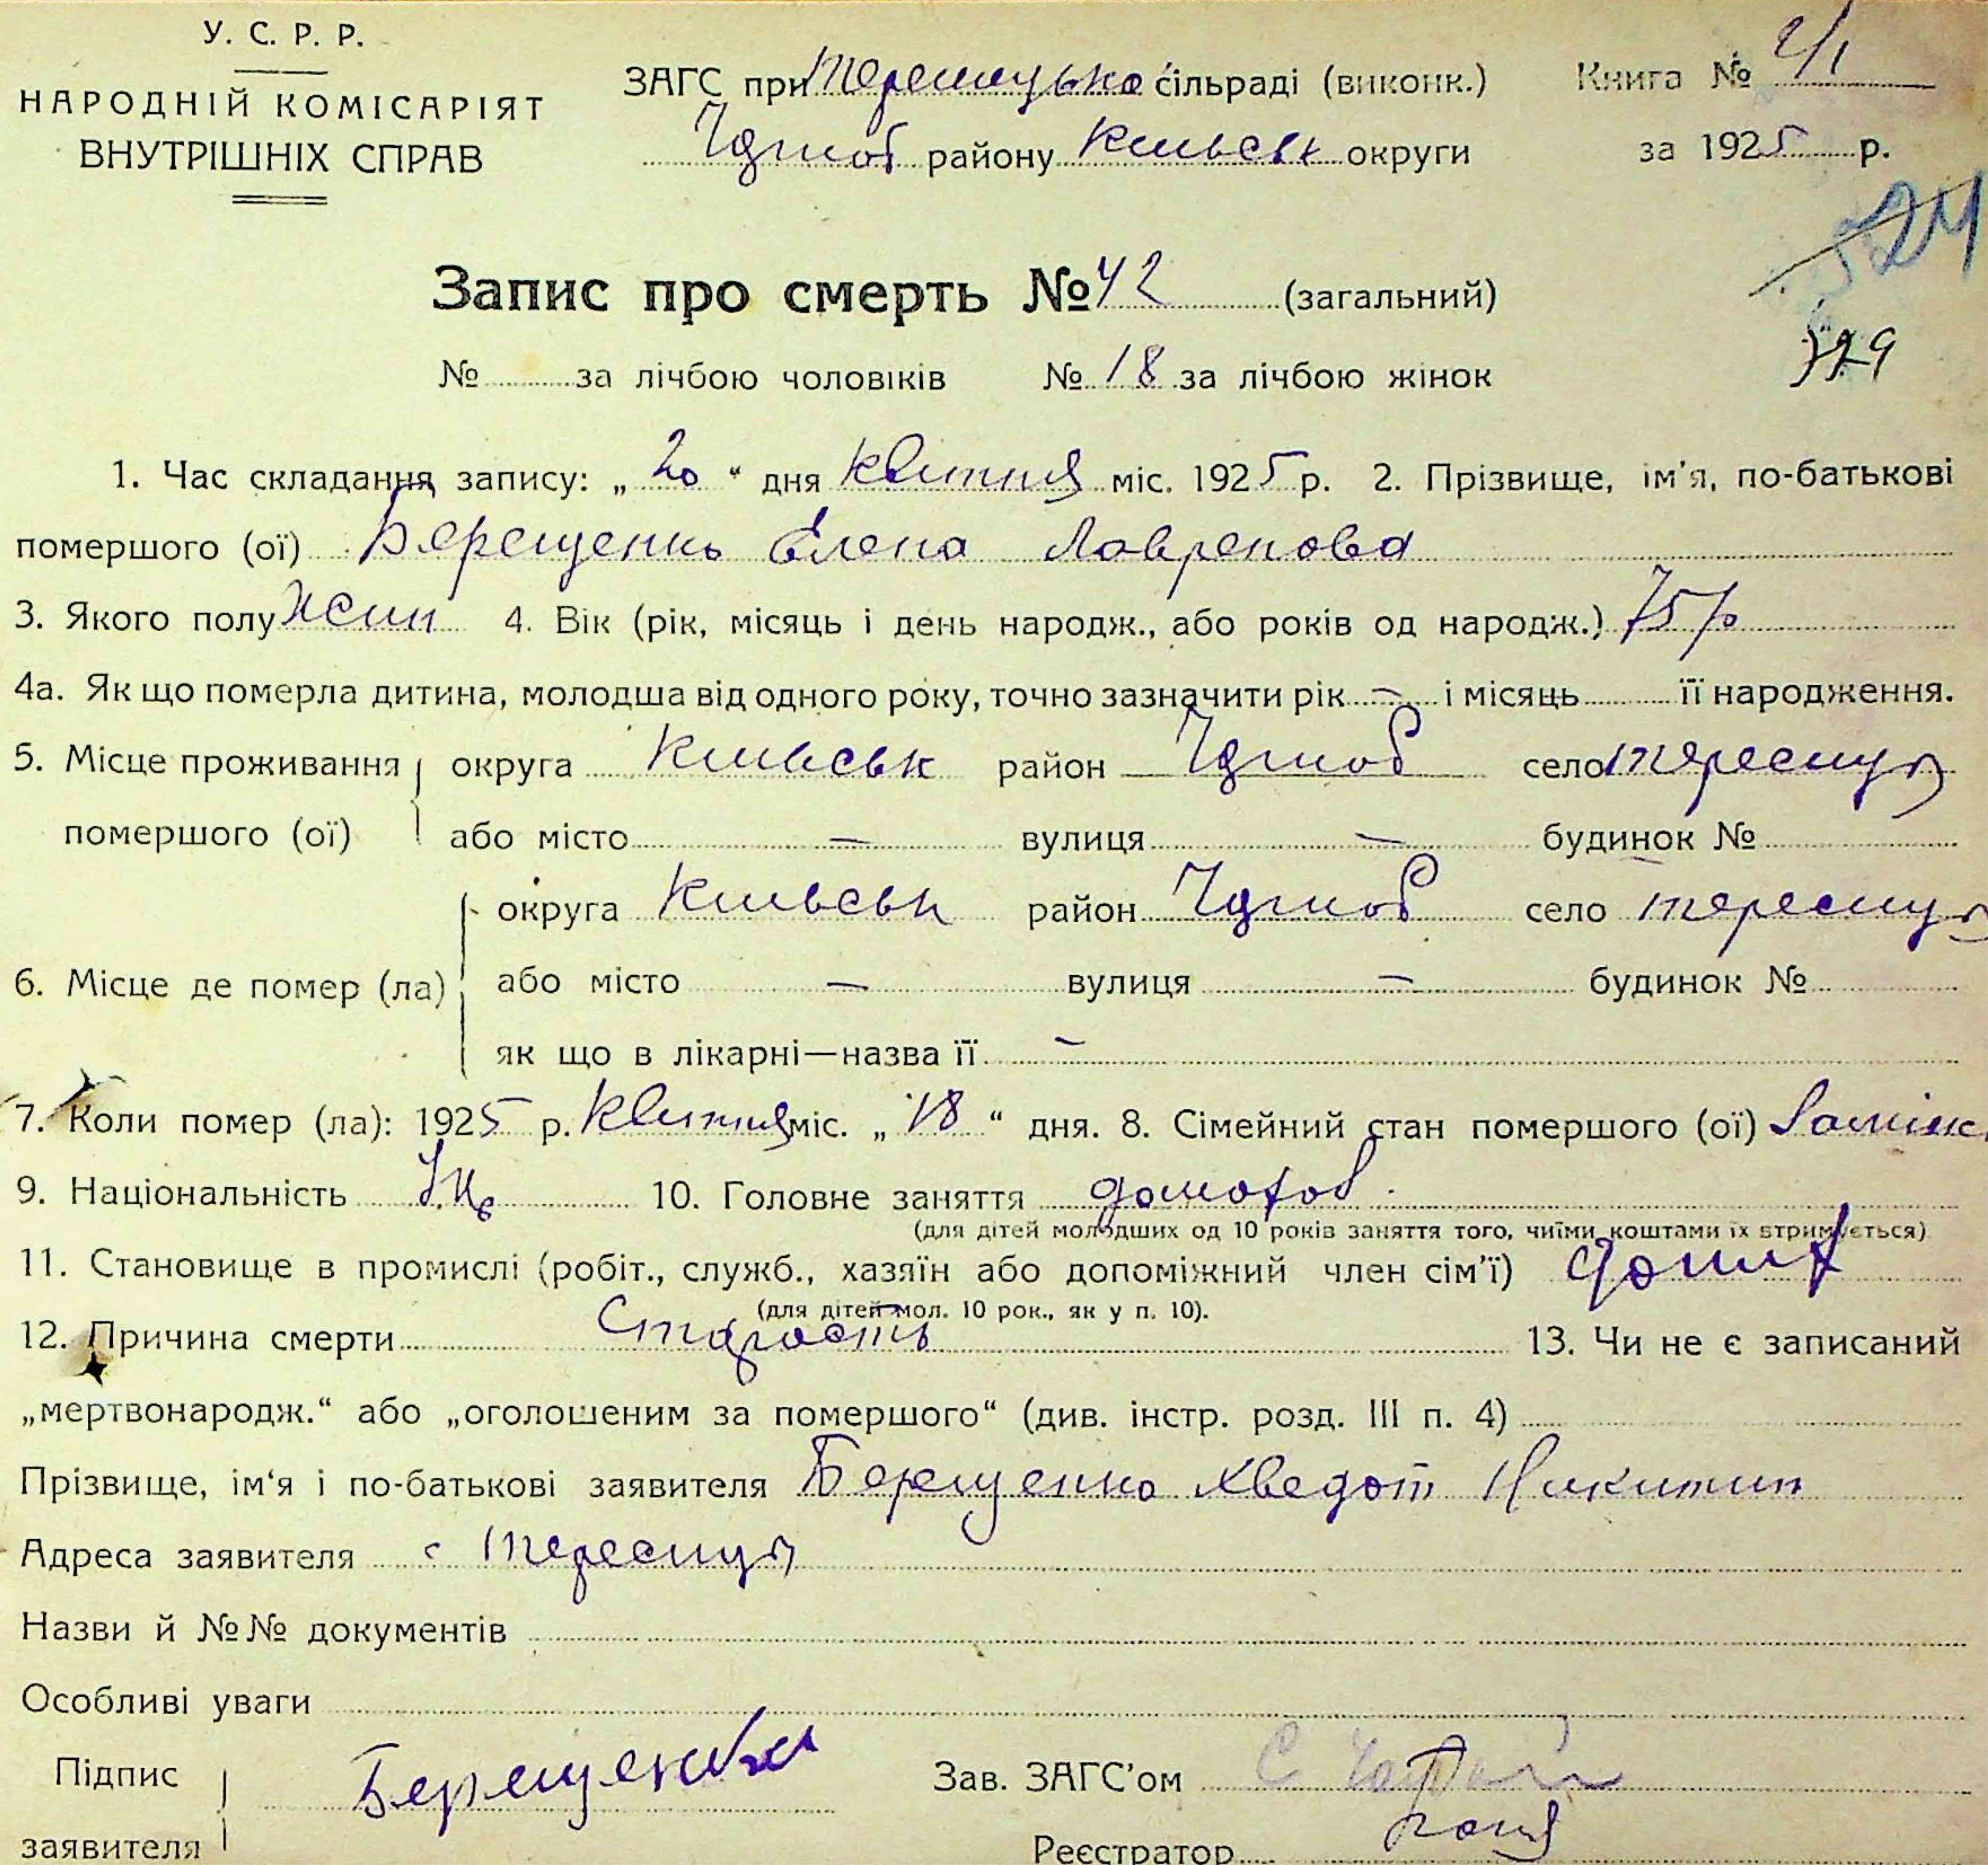 У. С. Р. Р.
НАРОДНІЙ КОМІСАРІЯТ
ВНУТРІШНІХ СПРАВ
ЗАГС при сільраді (виконк.) Книга № 2/1
району округи за 1925 р.
Запис про смерть № 42 (загальний)
№ за лічбою чоловіків № 18 за лічбою жінок
1. Час складання запису: „ 20 “ дня Квитня міс. 1925 р. 2. Прізвище, ім'я, по-батькові
помершого (ої) Берещенко Елена Лавренова
3. Якого полу жин 4. Вік (рік, місяць і день народж., або років од народж.) 75 р
4а. Як що померла дитина, молодша від одного року, точно зазначити рік — і місяць її народження.
5. Місце проживання округа район село
помершого (ої) або місто — вулиця — будинок №
округа район село
6. Місце де помер (ла) або місто — вулиця — будинок №
як що в лікарні—назва її —
7. Коли помер (ла): 1925 р. Квитня міс. „ 18 “ дня. 8. Сімейний стан помершого (ої)
9. Національність 10. Головне заняття домохоз.
(для дітей молодших од 10 років заняття того, чиїми коштами їх втримується)
11. Становище в промислі (робіт., служб., хазяїн або допоміжний член сім'ї)
(для дітей мол. 10 рок., як у п. 10).
12. Причина смерти Старость 13. Чи не є записаний
„мертвонародж.“ або „оголошеним за помершого“ (див. інстр. розд. III п. 4)
Прізвище, ім'я і по-батькові заявителя Берещенко Хведот Никитин
Адреса заявителя с
Назви й №№ документів
Особливі уваги
Підпис Берещенко Зав. ЗАГС'ом
заявителя Реєстратор